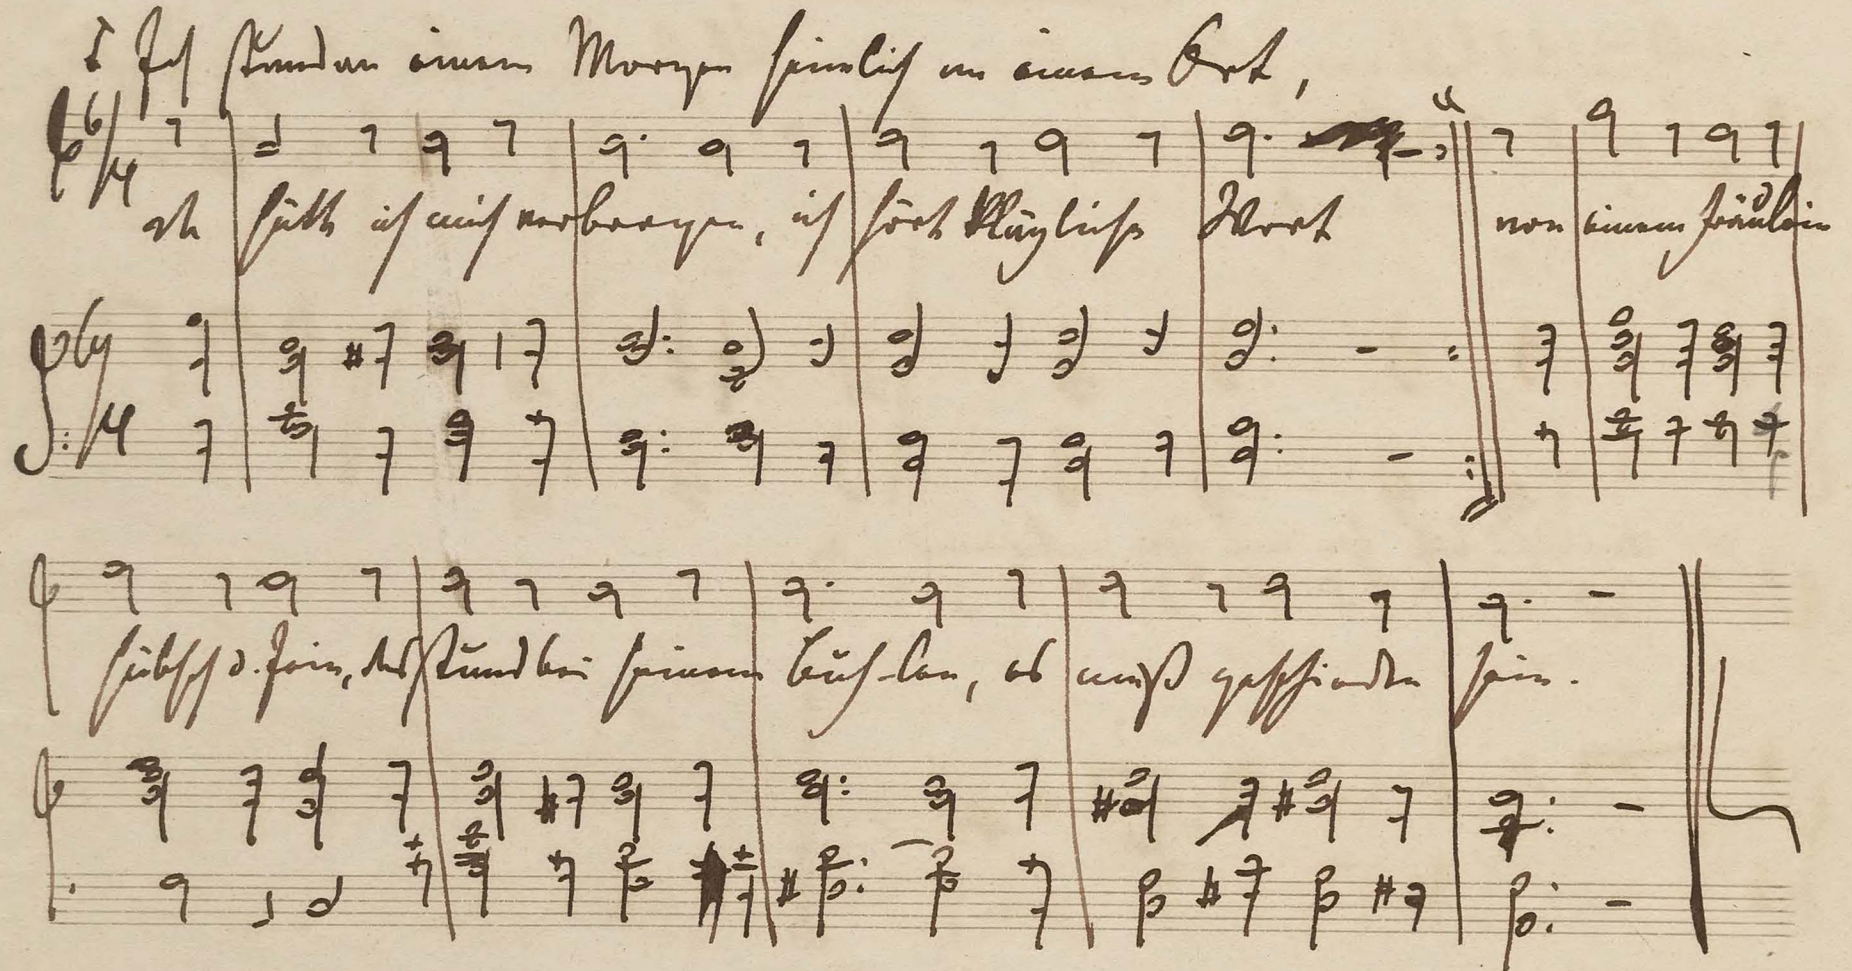 Ich stund an einem Morgen heimlich an einem Ort,
6/4
hätt ich mich verborgen, ich hört klägliche Wort von einem Fräulein
6/4
hübsch u. fein, das stund bei seinem Buhlen, es muß geschieden sein.